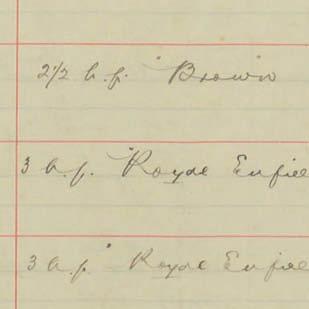 2½ h.p. "Brown
3 h.p. "Royal Enfie
3 h.p. " Royal Enfie